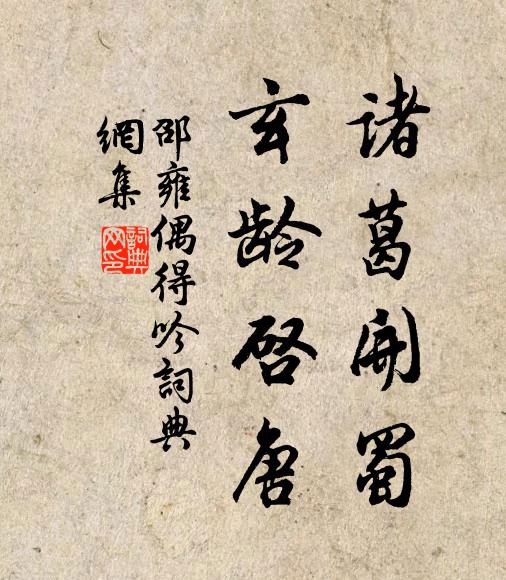 诸葛開蜀
玄龄啓唐
邵雍偶得吟詞典
網集
詞典
网印